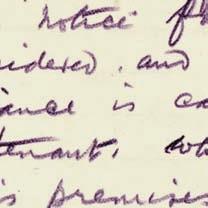 notice
idered. and
iance is
tenant.
s premises